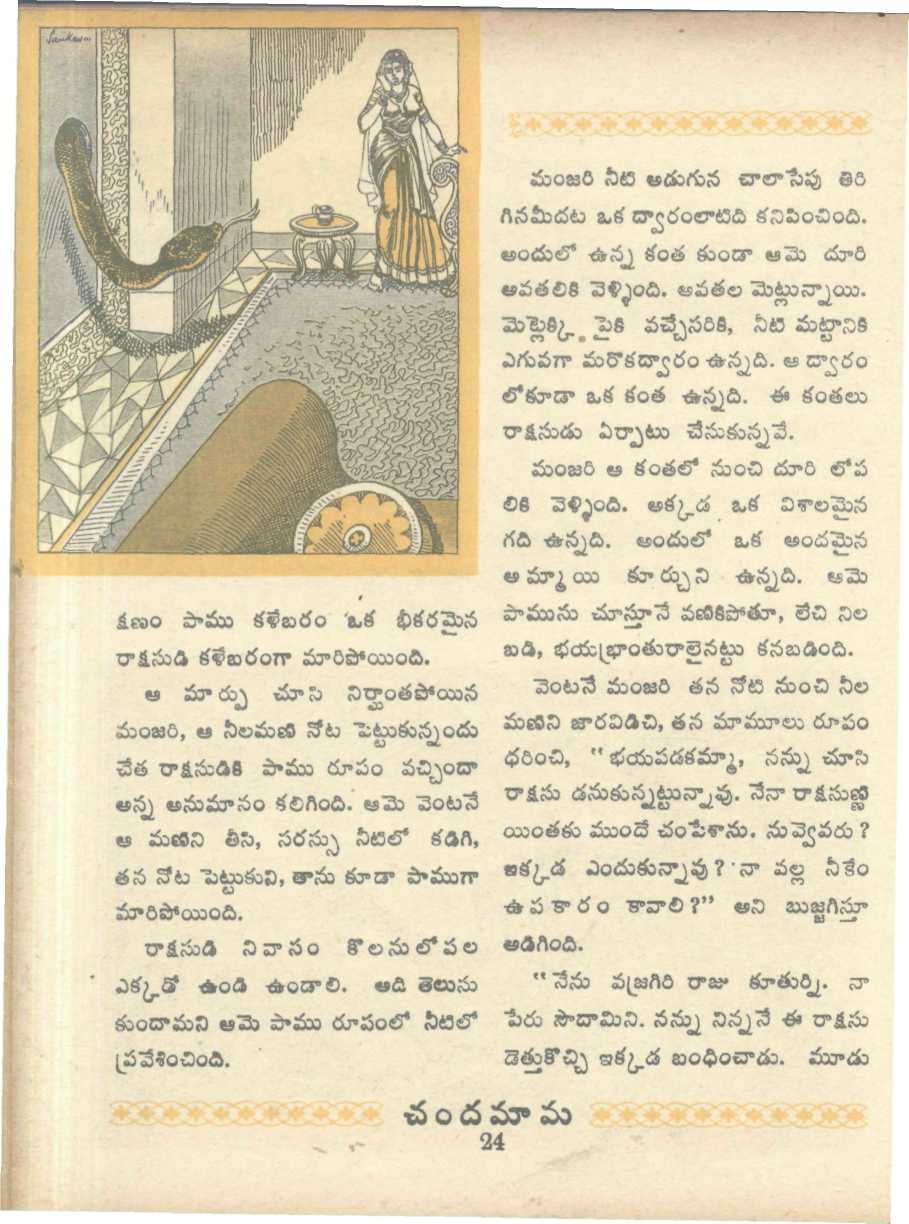 Sankar
క్షణం పాము కళేబరం ఒక భీకరమైన
రాక్షసుడి కళేబరంగా మారిపోయింది.
ఆ మార్పు చూసి నిర్ఘాంతపోయిన
మంజరి, ఆ నీలమణి నోట పెట్టుకున్నందు
చేత రాక్షసుడికి పాము రూపం వచ్చిందా
అన్న అనుమానం కలిగింది. ఆమె వెంటనే
ఆ మణిని తీసి, సరస్సు నీటిలో కడిగి,
తన నోట పెట్టుకుని, తాను కూడా పాముగా
మారిపోయింది.
రాక్షసుడి నివాసం కొలనులోపల
ఎక్కడో ఉండి ఉండాలి. అది తెలుసు
కుందామని ఆమె పాము రూపంలో నీటిలో
ప్రవేశించింది.
మంజరి నీటి అడుగున చాలాసేపు తిరి
గినమీదట ఒక ద్వారంలాటిది కనిపించింది.
అందులో ఉన్న కంత కుండా ఆమె దూరి
అవతలికి వెళ్ళింది. అవతల మెట్లున్నాయి.
మెట్లెక్కి పైకి వచ్చేసరికి, నీటి మట్టానికి
ఎగువగా మరొకద్వారం ఉన్నది. ఆ ద్వారం
లోకూడా ఒక కంత ఉన్నది. ఈ కంతలు
రాక్షసుడు ఏర్పాటు చేసుకున్నవే.
మంజరి ఆ కంతలో నుంచి దూరి లోప
లికి వెళ్ళింది. అక్కడ ఒక విశాలమైన
గది ఉన్నది. అందులో ఒక అందమైన
అమ్మాయి కూర్చుని ఉన్నది. ఆమె
పామును చూస్తూనే వణికిపోతూ, లేచి నిల
బడి, భయభ్రాంతురాలైనట్టు కనబడింది.
వెంటనే మంజరి తన నోటి నుంచి నీల
మణిని జారవిడిచి, తన మామూలు రూపం
ధరించి, “భయపడకమ్మా, నన్ను చూసి
రాక్షసు డనుకున్నట్టున్నావు. నేనా రాక్షసుణ్ణి
యింతకు ముందే చంపేశాను. నువ్వెవరు?
ఇక్కడ ఎందుకున్నావు? నా వల్ల నీకేం
ఉపకారం కావాలి?” అని బుజ్జగిస్తూ
అడిగింది.
“నేను వజ్రగిరి రాజు కూతుర్ని. నా
పేరు సౌదామిని. నన్ను నిన్ననే ఈ రాక్షసు
డెత్తుకొచ్చి ఇక్కడ బంధించాడు. మూడు
చందమామ
24